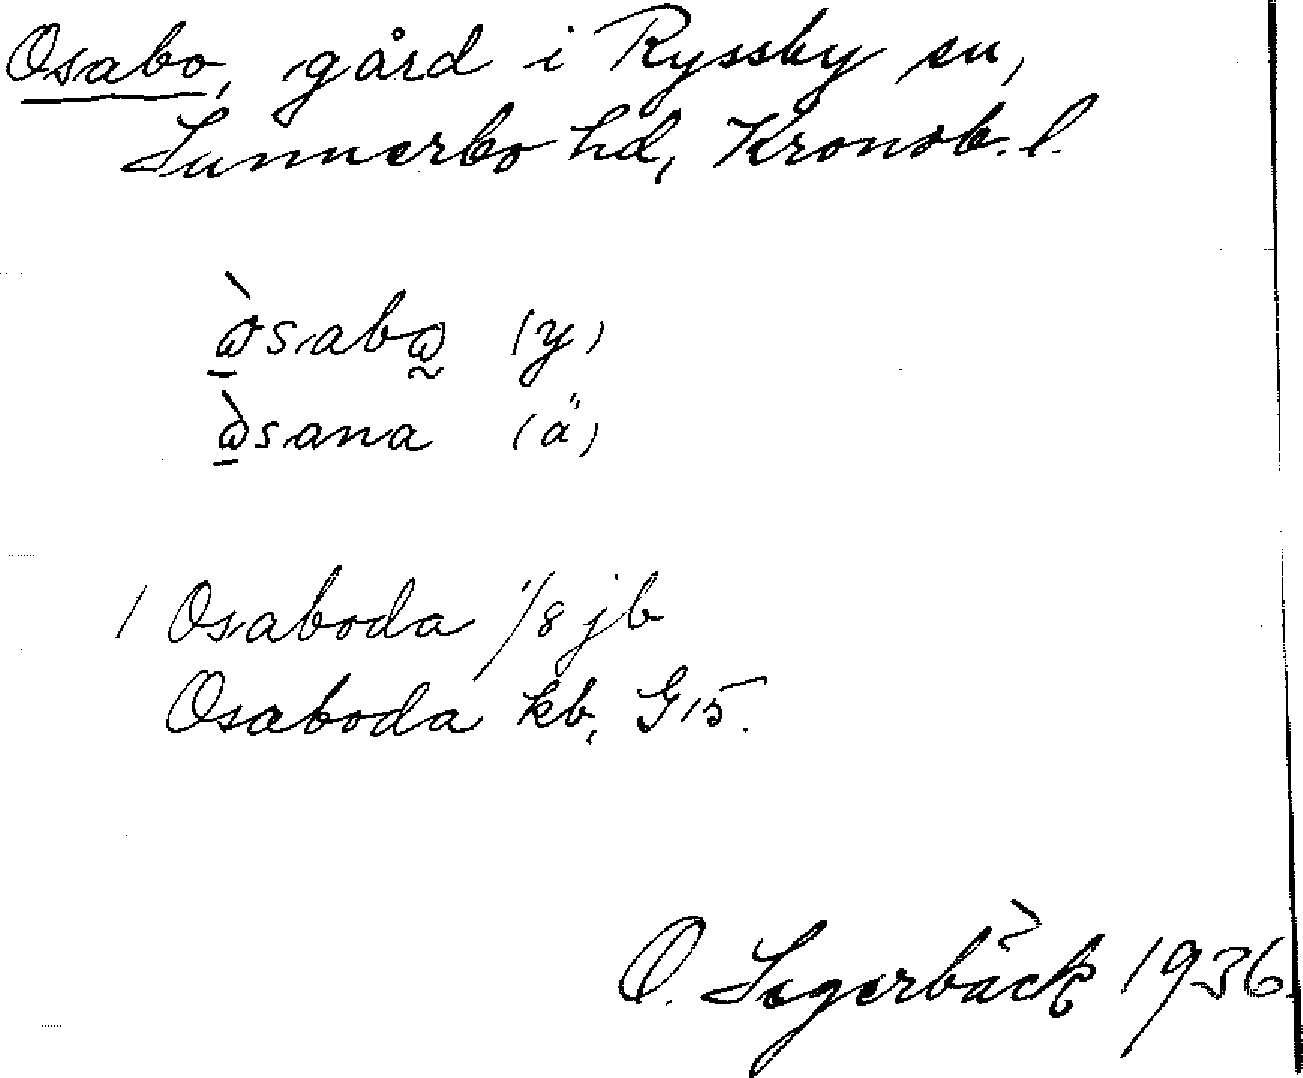 Osabo, gård i Ryssby sn,
Sunnerbo hd, Kronob. l.
ὼ̱sabω̰ (y)
ὼ̱sana (ä)
1 Osaboda 1/8 jb
Osaboda kb, G15.
O. Segerbäck 1936.